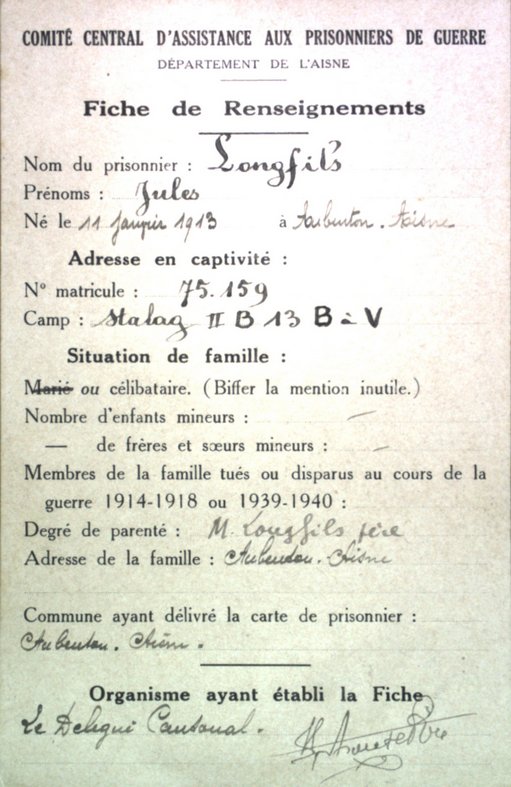 COMITÉ CENTRAL D'ASSISTANCE AUX PRISONNIERS DE GUERRE
DÉPARTEMENT DE L'AISNE
Fiche de Renseignements
Nom du prisonnier : Longfils
Prénoms : Jules
Né le 11 janvier 1913 à Aubenton. Aisne
Adresse en captivité :
N° matricule : 75.159
Camp : Stalag II B 13 B à V
Situation de famille :
Marié ou célibataire. (Biffer la mention inutile.)
Nombre d'enfants mineurs : —
— de frères et sœurs mineurs : —
Membres de la famille tués ou disparus au cours de la
guerre 1914-1918 ou 1939-1940 :
Degré de parenté : M. Longfils père
Adresse de la famille : Aubenton. Aisne
Commune ayant délivré la carte de prisonnier :
Aubenton. Aisne.
Organisme ayant établi la Fiche
Le Délégué Cantonal.